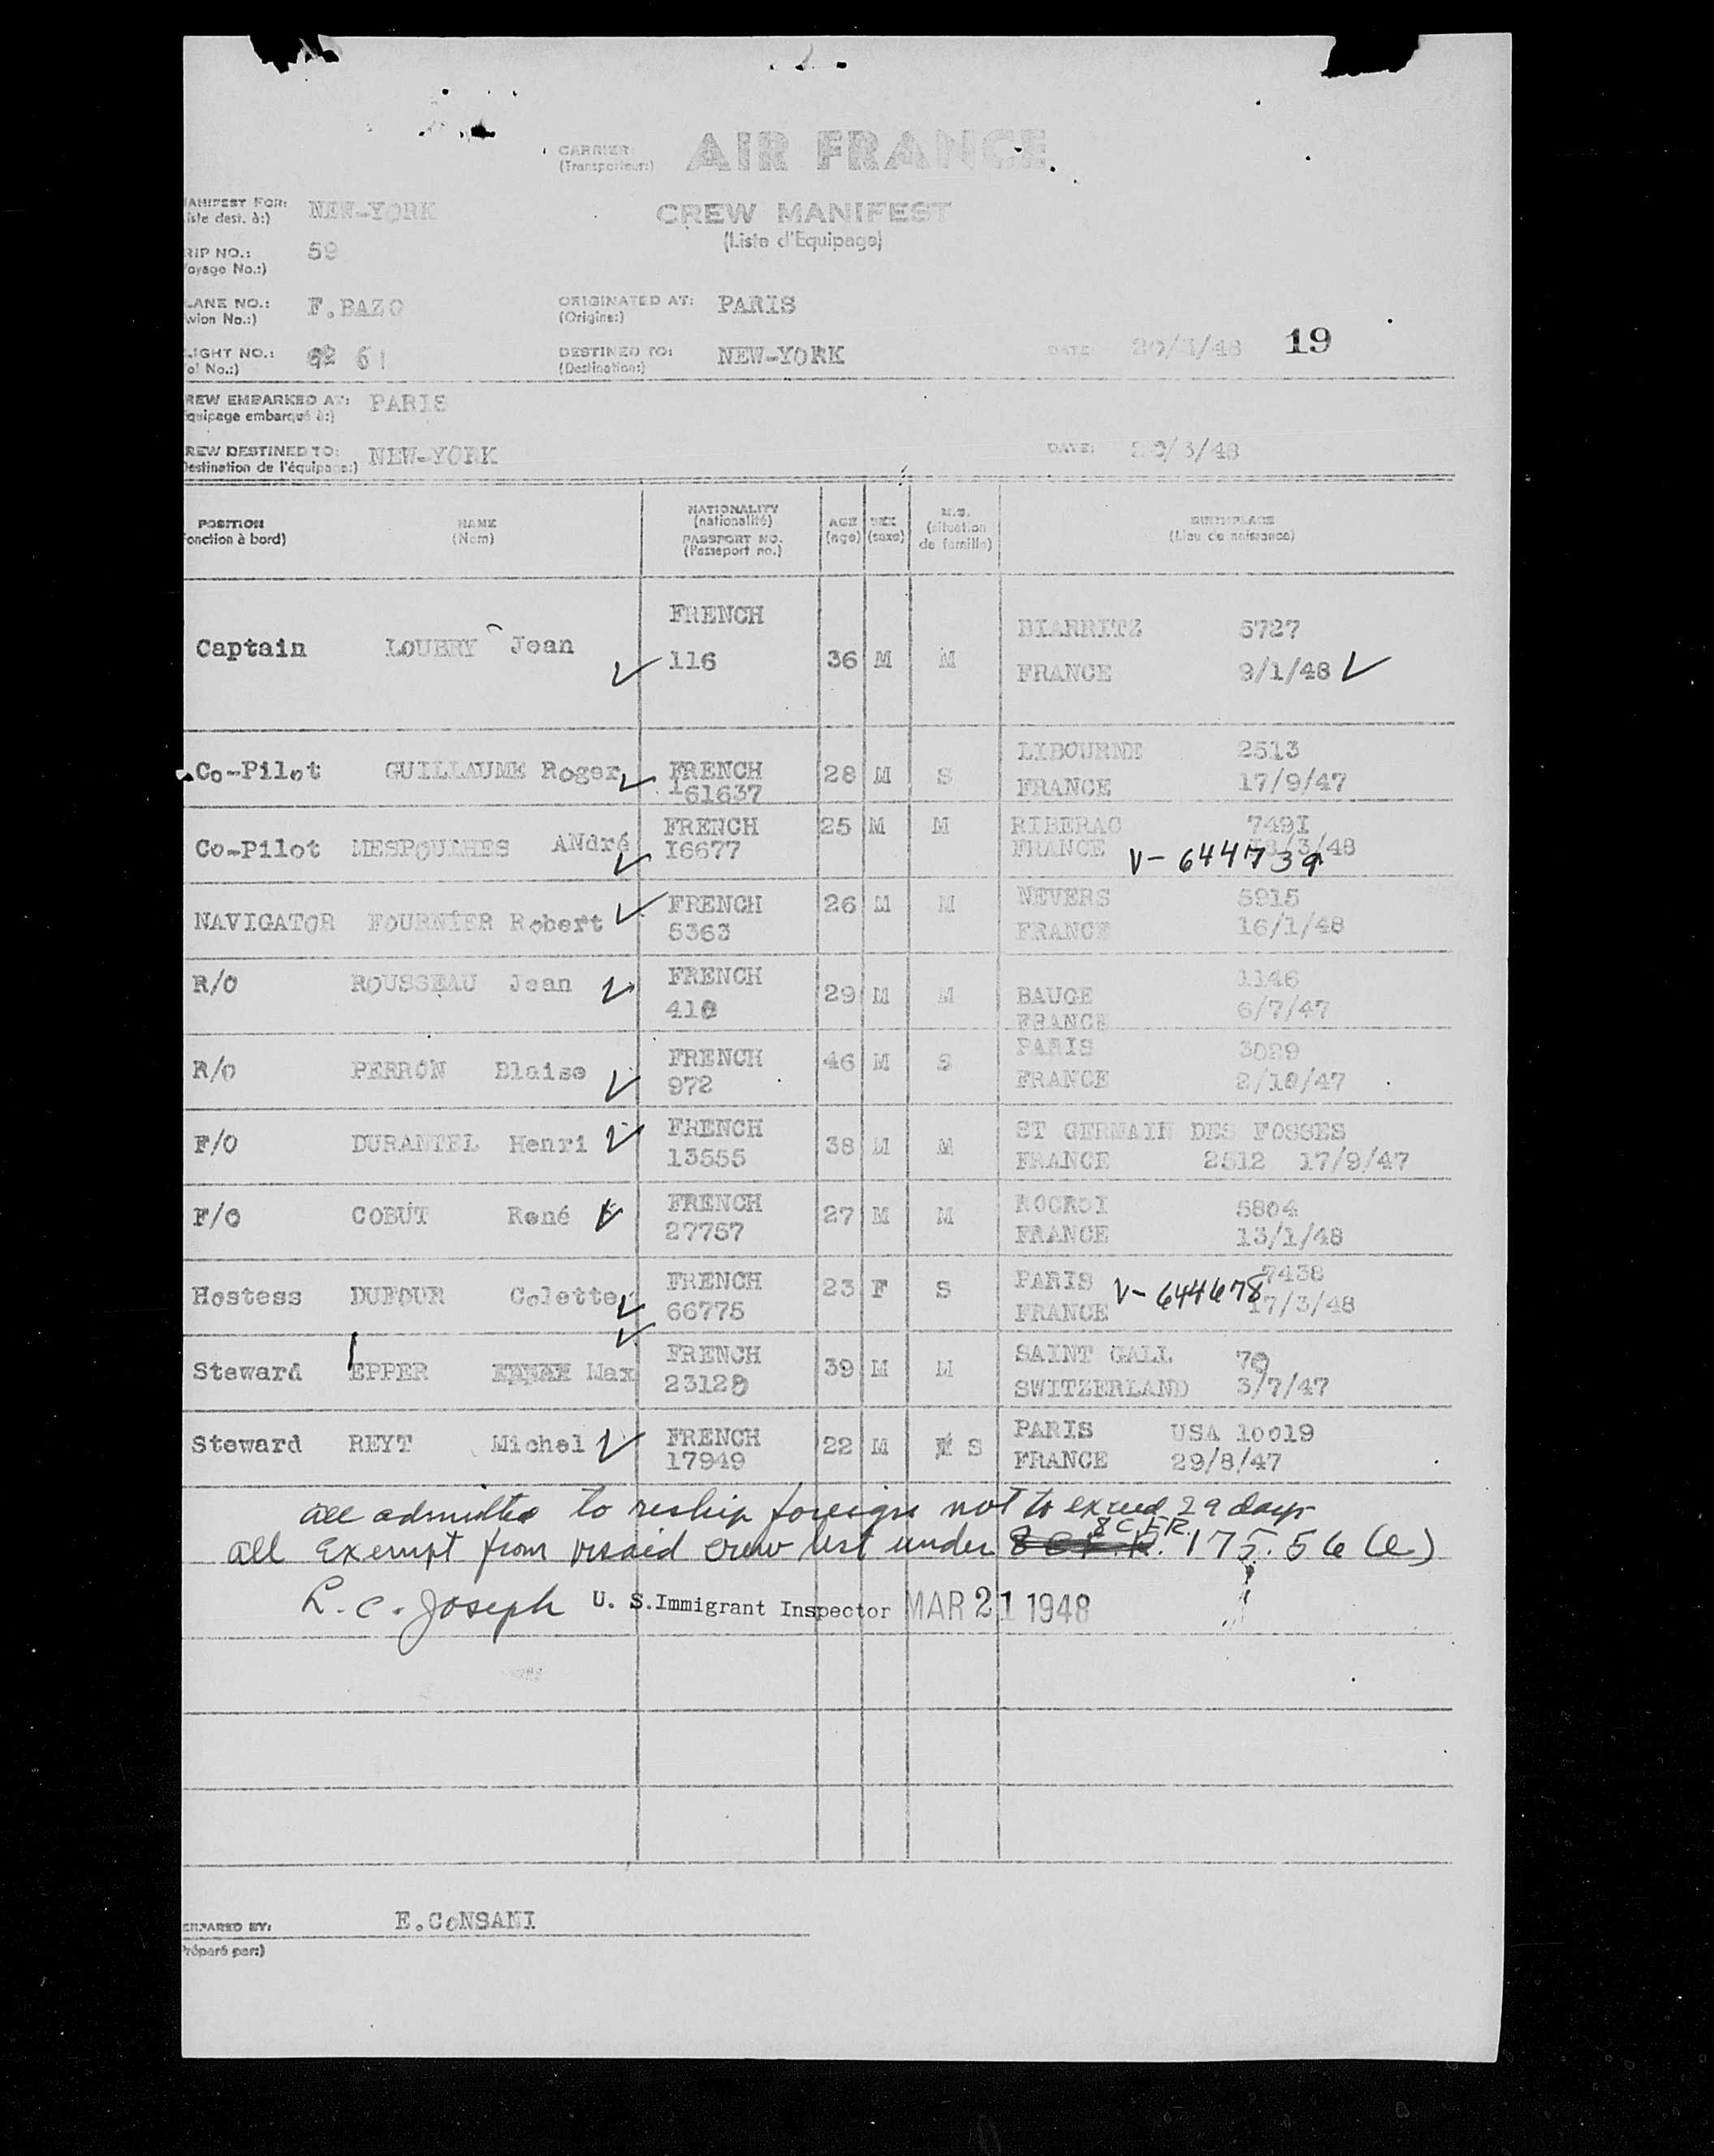 CARRIER: AIR FRANCE
(Transporteur:)
MANIFEST FOR: NEW-YORK CREW MANIFEST
iste dest. à:) (Liste d'Equipage)
RIP NO.: 59
oyage No.:)
LANE NO.: F.BAZO ORIGINATED AT: PARIS
vion No.:) (Origine:)
LIGHT NO.: 61 DESTINED TO: NEW-YORK DATE: 20/3/48 19
ol No.:) (Destination:)
REW EMBARKED AT: PARIS
quipage embarqué à:)
REW DESTINED TO: NEW-YORK DATE: 20/3/48
Destination de l'équipage:)
POSITION NAME NATIONALITY AGE SEX M.S. BIRTHPLACE
onction à bord) (Nom) (nationalité) (age) (sexe) (situation de famille) (Lieu de naissance)
PASSPORT NO.
(Passeport no.)
Captain LOUBRY Jean FRENCH 36 M M BIARRITZ 5727
116 FRANCE 9/1/48
Co-Pilot GUILLAUME Roger FRENCH 28 M S LIBOURNE 2513
161637 FRANCE 17/9/47
Co-Pilot MESPOULHES ANdré FRENCH 25 M M RIBERAC 749I
I6677 FRANCE V-644739 18/3/48
NAVIGATOR FOURNIER Robert FRENCH 26 M M NEVERS 5915
5363 FRANCE 16/1/48
R/O ROUSSEAU Jean FRENCH 29 M M BAUGE 1146
410 FRANCE 6/7/47
R/O PERRON Blaise FRENCH 46 M S PARIS 3029
972 FRANCE 2/10/47
F/O DURANTEL Henri FRENCH 38 M M ST GERMAIN DES FOSSES
13555 FRANCE 2512 17/9/47
F/O COBUT René FRENCH 27 M M ROCROI 5804
27757 FRANCE 13/1/48
Hostess DUFOUR Colette FRENCH 23 F S PARIS 7438
66775 FRANCE V-644678 17/3/48
Steward EPPER Max FRENCH 39 M M SAINT GALL 70
23128 SWITZERLAND 3/7/47
Steward REYT Michel FRENCH 22 M S PARIS USA 10019
17949 FRANCE 29/8/47
all admitted to reship foreign not to exceed 29 days
all Exempt from visaed crew list under 8 C.F.R. 175.56 (e)
L. C. Joseph U. S. Immigrant Inspector MAR 21 1948
ERPARED BY: E.CoNSANI
Préparé par:)